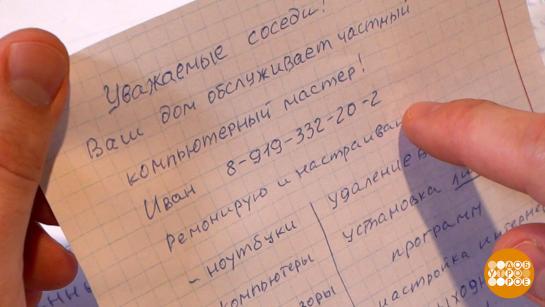 Уважаемые соседи!
Ваш дом обслуживает частный
компьютерный мастер!
Иван 8-919-332-20-2
Ремонирую и настраиваю
- ноутбуки
компьютеры
удаление
установка
программ
настройка интернет
ДОБ
УТРО
РОЕ